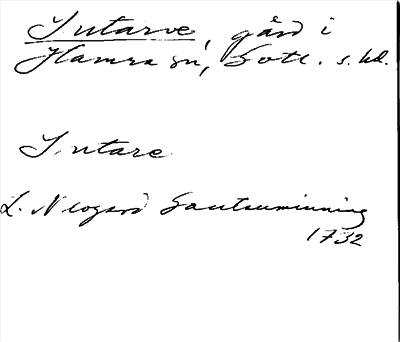 Intarve, gård i
Hamra sn, Gotl. s. hd.
Intare
L. Neogard Gautauminning
1732